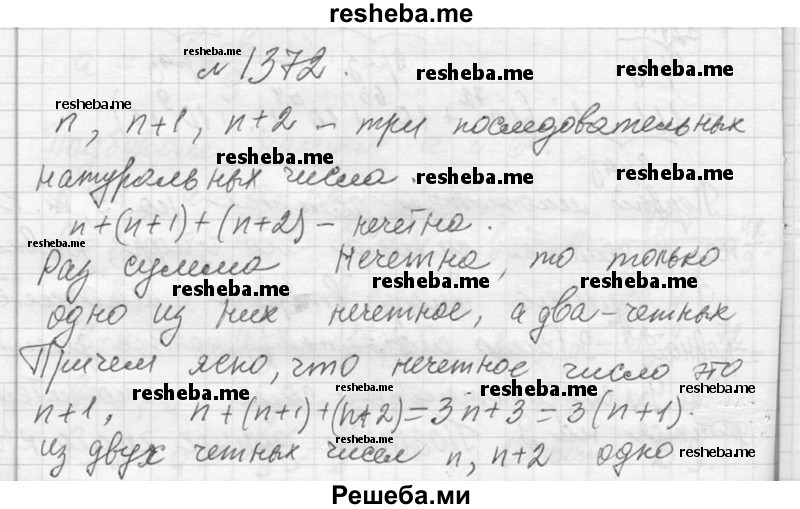 resheba.me
№ 1372.
resheba.me
resheba.me
resheba.me
n, n+1, n+2 – три последовательных
resheba.me
resheba.me
натуральных числа.
resheba.me
n+(n+1)+(n+2) – нечетна.
resheba.me
Раз сумма нечетна, то только
resheba.me resheba.me resheba.me
одно из них нечетное, а два – четных
Причем ясно, что нечетное число это
resheba.me resheba.me resheba.me resheba.me
n+1, n+(n+1)+(n+2)=3n+3=3(n+1).
resheba.me
из двух четных чисел n, n+2 одно
resheba.me
Решеба.ми